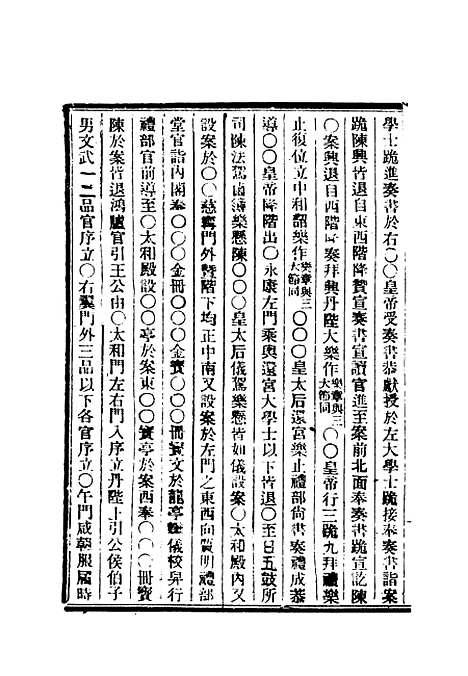 學士跪進奏書於右〇〇皇帝受奏書恭獻授於左大學士跪接奉奏書詣案
跪陳興皆退自東西階降贊宣奏書宣讀官進至案前北面奉奏書跪宣訖陳
〇案興退自西階降奏拜興丹陛大樂作樂章與三大節同〇〇皇帝行三跪九拜禮樂
止復位立中和韶樂作樂章與三大節同〇〇〇皇太后還宮樂止禮部尚書奏禮成恭
導〇〇皇帝降階出〇永康左門乘輿還宮大學士以下皆退〇至日五鼓所
司陳法駕鹵簿樂懸陳〇〇〇皇太后儀駕樂懸皆如儀設案〇太和殿內又
設案於〇〇慈寧門外曁階下均正中南又設案於左門之東西向質明禮部
堂官詣內閣奉〇〇〇金冊〇〇〇金寶〇〇〇冊寶文於龍亭鑾儀校舁行
禮部官前導至〇太和殿設〇〇亭於案東〇〇寶亭於案西奉〇〇〇冊寶
陳於案皆退鴻臚官引王公由〇太和門左右門入序立丹陛上引公侯伯子
男文武一二品官序立〇右翼門外三品以下各官序立〇午門咸朝服屆時